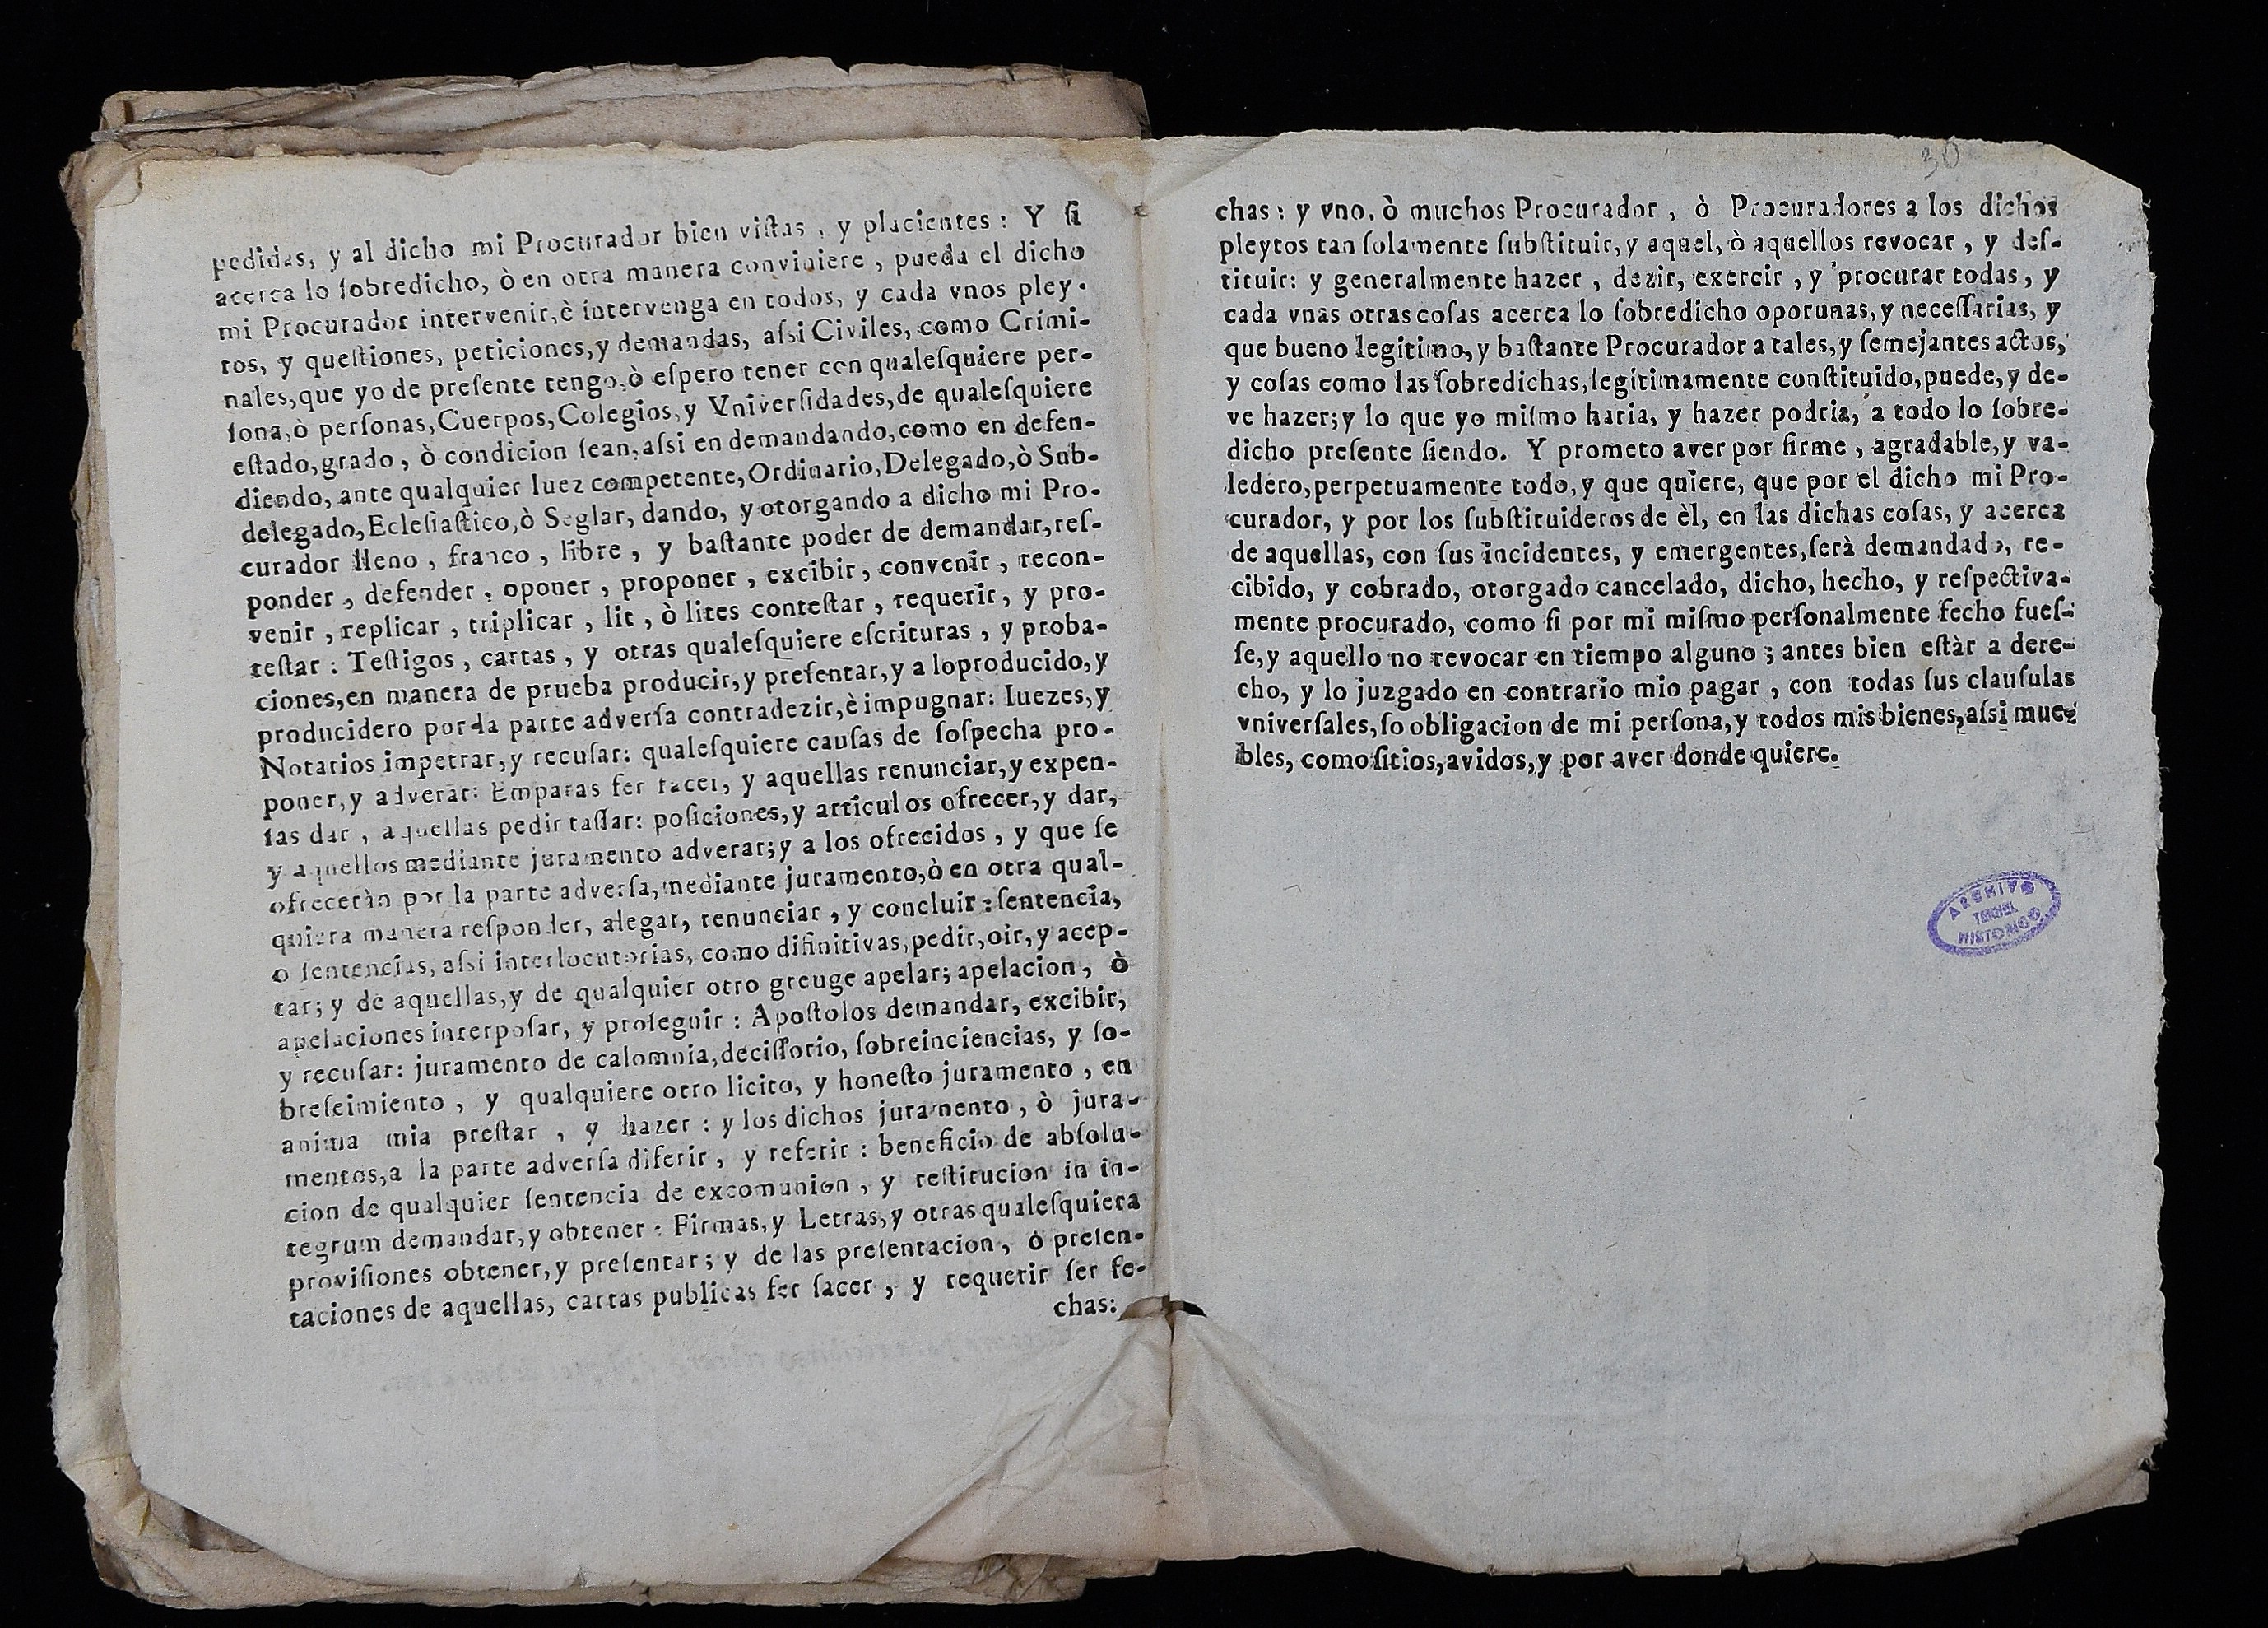 pedidas, y al dicho mi Procurador bien viſtas, y placientes: Y ſi
acerca lo ſobredicho, ò en otra manera conviniere, pueda el dicho
mi Procurador intervenir, è intervenga en todos, y cada vnos pley-
tos, y queſtiones, peticiones, y demandas, aſsi Civiles, como Crimi-
nales, que yo de preſente tengo, ò eſpero tener con qualeſquiere per-
ſona, ò perſonas, Cuerpos, Colegios, y Vniverſidades, de qualeſquiere
eſtado, grado, ò condicion ſean, aſsi en demandando, como en defen-
diendo, ante qualquier Iuez competente, Ordinario, Delegado, ò Sub-
delegado, Ecleſiaſtico, ò Seglar, dando, y otorgando a dicho mi Pro-
curador lleno, franco, libre, y baſtante poder de demandar, reſ-
ponder, defender, oponer, proponer, excibir, convenir, recon-
venir, replicar, triplicar, lit, ò lites conteſtar, requerir, y pro-
teſtar: Teſtigos, cartas, y otras qualeſquiere eſcrituras, y proba-
ciones, en manera de prueba producir, y preſentar, y a lo producido, y
producidero por la parte adverſa contradezir, è impugnar: Iuezes, y
Notarios impetrar, y recuſar: qualeſquiere cauſas de ſoſpecha pro-
poner, y adverar: Emparas fer facer, y aquellas renunciar, y expen-
ſas dar, aquellas pedir taſſar: poſiciones, y articulos ofrecer, y dar,
y aquellos mediante juramento adverar; y a los ofrecidos, y que ſe
ofreceràn por la parte adverſa, mediante juramento, ò en otra qual-
quiera manera reſponder, alegar, renunciar, y concluir: ſentencia,
o ſentencias, aſsi interlocutorias, como difinitivas, pedir, oir, y acep-
tar; y de aquellas, y de qualquier otro greuge apelar; apelacion, ò
apelaciones interpoſar, y proſeguir: Apoſtolos demandar, excibir,
y recuſar: juramento de calomnia, deciſſorio, ſobreinciencias, y ſo-
breſeimiento, y qualquiere otro licito, y honeſto juramento, en
anima mia preſtar, y hazer: y los dichos juramento, ò jura-
mentos, a la parte adverſa diferir, y referir: beneficio de abſolu-
cion de qualquier ſentencia de excomunion, y reſtitucion in in-
tegrum demandar, y obtener: Firmas, y Letras, y otras qualeſquiera
proviſiones obtener, y preſentar; y de las preſentacion, ò preſen-
taciones de aquellas, cartas publicas fer facer, y requerir ſer fe-
chas:
30
chas: y vno, ò muchos Procurador, ò Procuradores a los dichos
pleytos tan ſolamente ſubſtituir, y aquel, ò aquellos revocar, y deſ-
tituir: y generalmente hazer, dezir, exercir, y procurar todas, y
cada vnas otras coſas acerca lo ſobredicho oporunas, y neceſſarias, y
que bueno legitimo, y baſtante Procurador a tales, y ſemejantes actos,
y coſas como las ſobredichas, legitimamente conſtituido, puede, y de-
ve hazer; y lo que yo miſmo haria, y hazer podria, a todo lo ſobre-
dicho preſente ſiendo. Y prometo aver por firme, agradable, y va-
ledero, perpetuamente todo, y que quiere, que por el dicho mi Pro-
curador, y por los ſubſtituideros de èl, en las dichas coſas, y acerca
de aquellas, con ſus incidentes, y emergentes, ſerà demandado, re-
cibido, y cobrado, otorgado cancelado, dicho, hecho, y reſpectiva-
mente procurado, como ſi por mi miſmo perſonalmente fecho fueſ-
ſe, y aquello no revocar en tiempo alguno; antes bien eſtàr a dere-
cho, y lo juzgado en contrario mio pagar, con todas ſus clauſulas
vniverſales, ſo obligacion de mi perſona, y todos mis bienes, aſsi mue-
bles, como ſitios, avidos, y por aver donde quiere.
ARCHIVO
TERUEL
HISTORICO